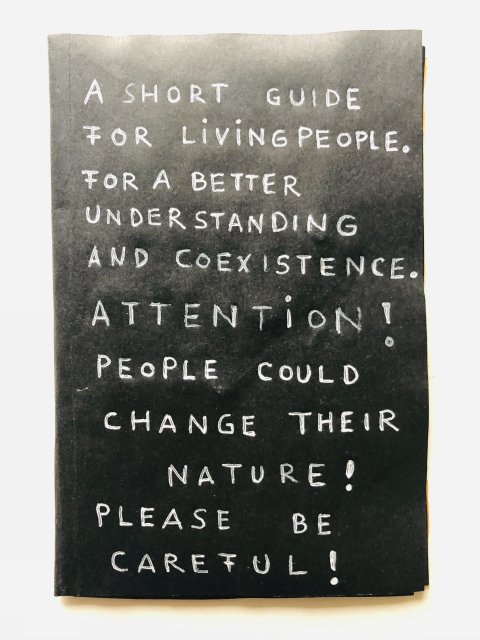 A SHORT GUIDE
FOR LiViNGPEOPLE.
FOR A BETTER
UNDERSTANDING
AND COEXISTENCE.
ATTENTiON!
PEOPLE COULD
CHANGE THEIR
NATURE!
PLEASE BE
CAREFUL!